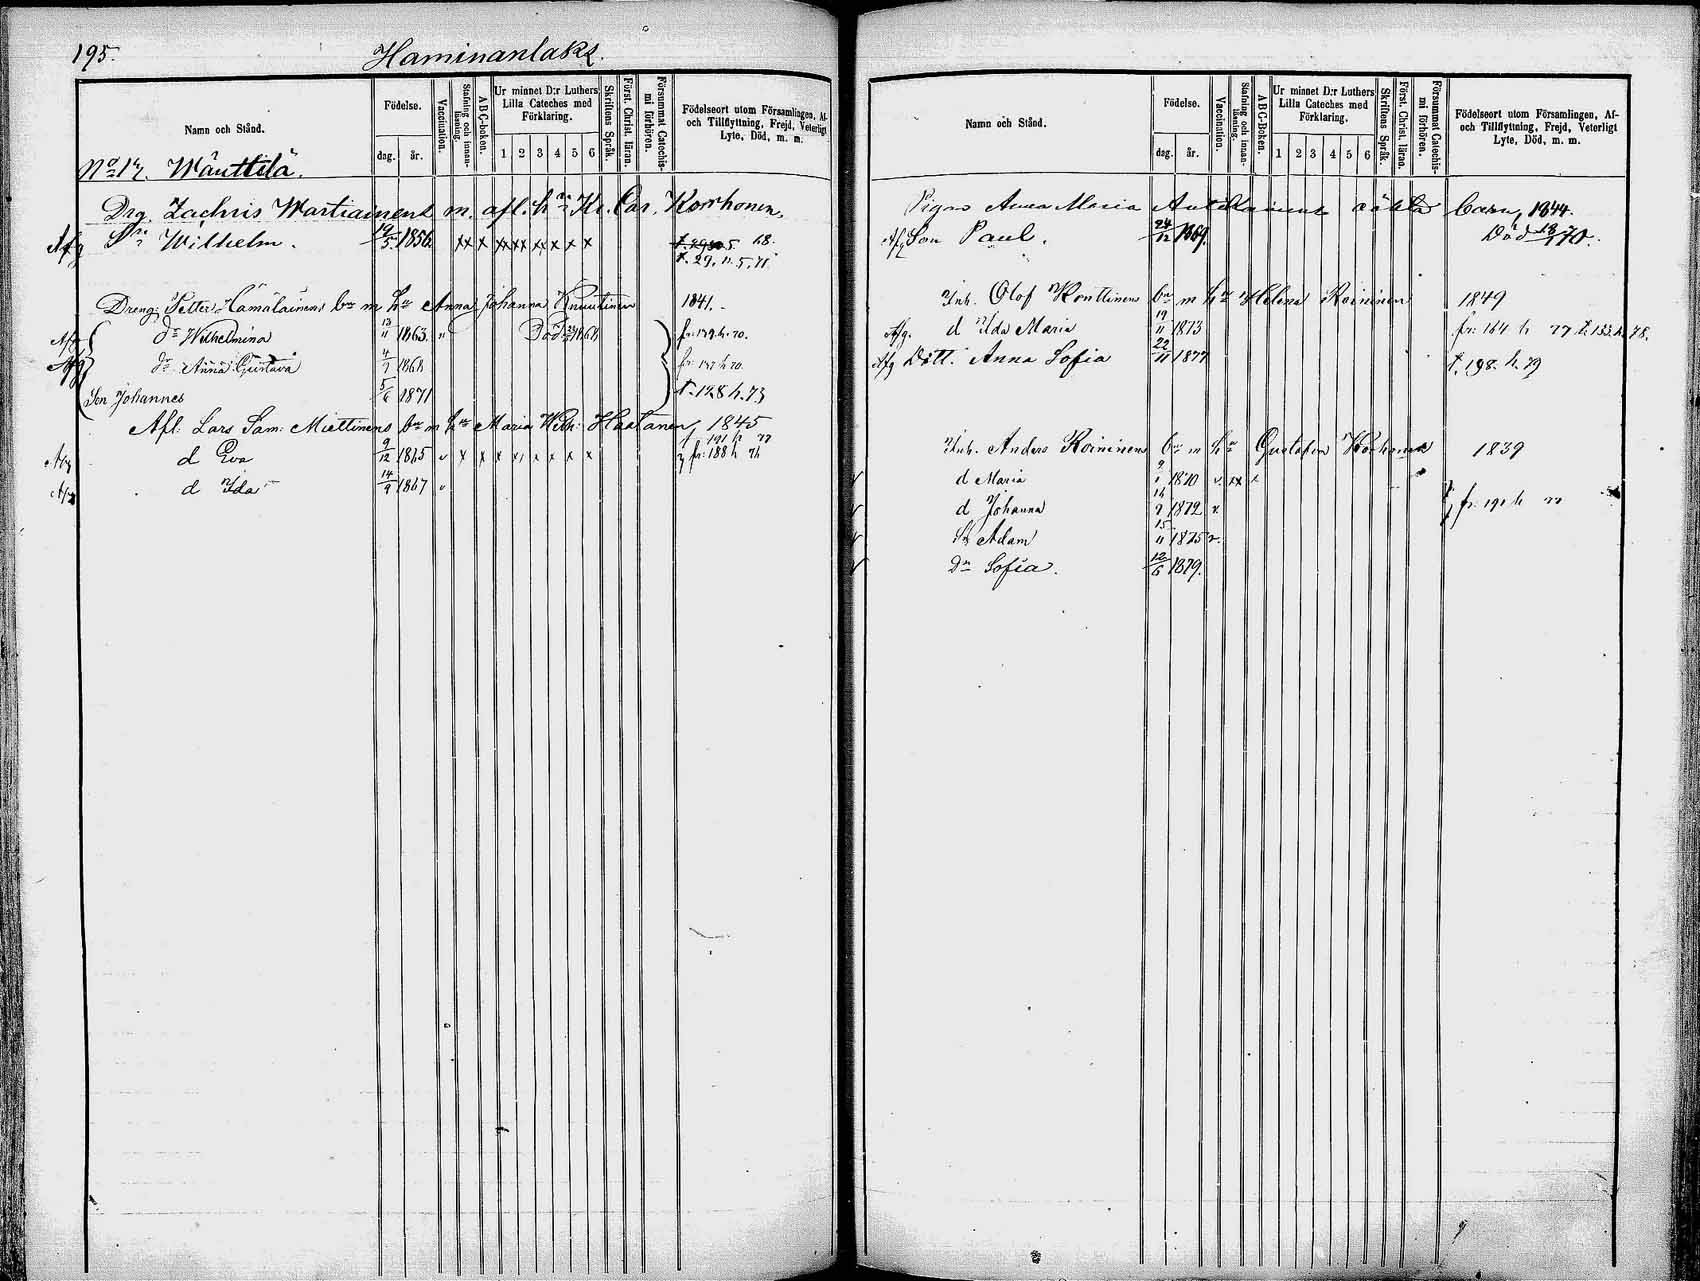 195.
Haminanlaks.
Namn och Stånd.
Födelse.
dag.
år.
Vaccination.
Stafning och innanläsning.
A B C-boken.
Ur minnet D:r Luthers
Lilla Cateches med
Förklaring.
1 2 3 4 5 6
Skriftens Språk.
Först. Christ. läran.
Försummat Catechismi förhören.
Födelseort utom Församlingen, Af-
och Tillflyttning, Frejd, Veterligt
Lyte, Död, m. m.
No 17. Mänttilä.
Drg. Zachris Wartiainens m. afl. hu Kr. Car. Korhonen.
Afg Sn Wilhelm. 19/5 1856. xx x xx xx xx x x x
t. 29. n. 5. 71.
Dreng: Petter Hämäläinens bn m hu Anna Johanna Knuutinen 1841.
Afg dr Wilhelmina 13/11 1863. Död 1868 fr: 179. h. 70.
Afg dr Anna Gustava 4/7 1868 fr: 177 h 70.
Son Johannes 5/6 1871 t. 128 h. 73
Afl: Lars Sam: Miettinens bn m hu Maria Wilh: Haatanen, 1845
t 191 h 77
Afg d Eva 9/12 1865 v x x x x x x x x fr: 188 h 76
Afg d Ida 14/9 1867 v
Namn och Stånd.
Födelse.
dag.
år.
Vaccination.
Stafning och innanläsning.
A B C-boken.
Ur minnet D:r Luthers
Lilla Cateches med
Förklaring.
1 2 3 4 5 6
Skriftens Språk.
Först. Christ. läran.
Försummat Catechismi förhören.
Födelseort utom Församlingen, Af-
och Tillflyttning, Frejd, Veterligt
Lyte, Död, m. m.
Pigan Anna Maria oäkta barn, 1844.
Afg Son Paul. 24/12 1869. Död
Inh. Olof Honttinens bn m hu Helena Roininen 1849
Afg. d Ida Maria 19/11 1873 fr: 164 h 77 t. 133 h. 78.
Afg Dott. Anna Sofia 22/11 1877 t. 198. h. 79
Inh. Anders Roininens bn m hu Gustafva Korhonen 1839
d Maria 1870 v. xx x
d Johanna 1872 v. fr: 191 h 77
Sn Adam 15/11 1875 v.
Dn Sofia. 12/6 1879.